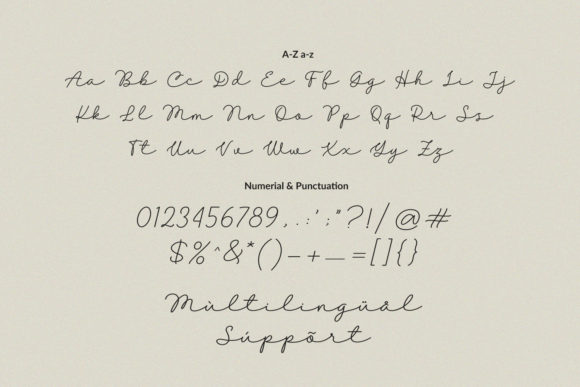 A-Z a-z
Aa Bb Cc Dd Ee Ff Gg Hh Ii Jj
Kk Ll Mm Nn Oo Pp Qq Rr Ss
Tt Uu Vv Ww Xx Yy Zz
Numerial & Punctuation
0123456789,.:';"?!/@#
$%^&*()-+_=[]{}
Mùltilingüål
Súppõrt